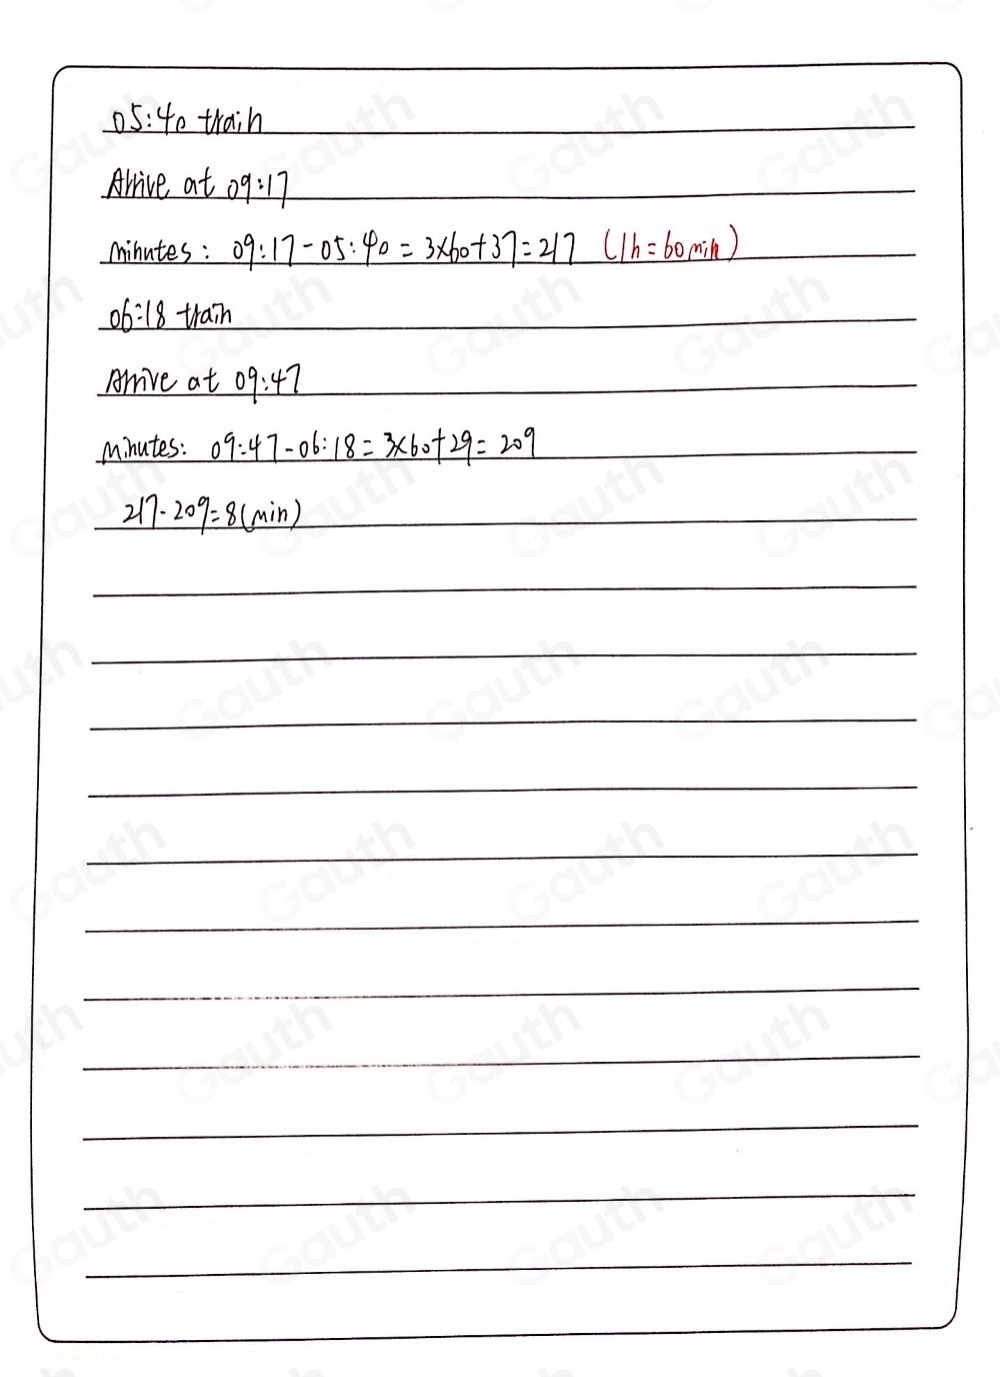 05:40 train
Arrive at 09:17
minutes: 09:17-05:40=3×60+37=217 (1h=60min)
06:18 train
Arrive at 09:47
minutes: 09:47-06:18=3×60+29=209
217-209=8(min)